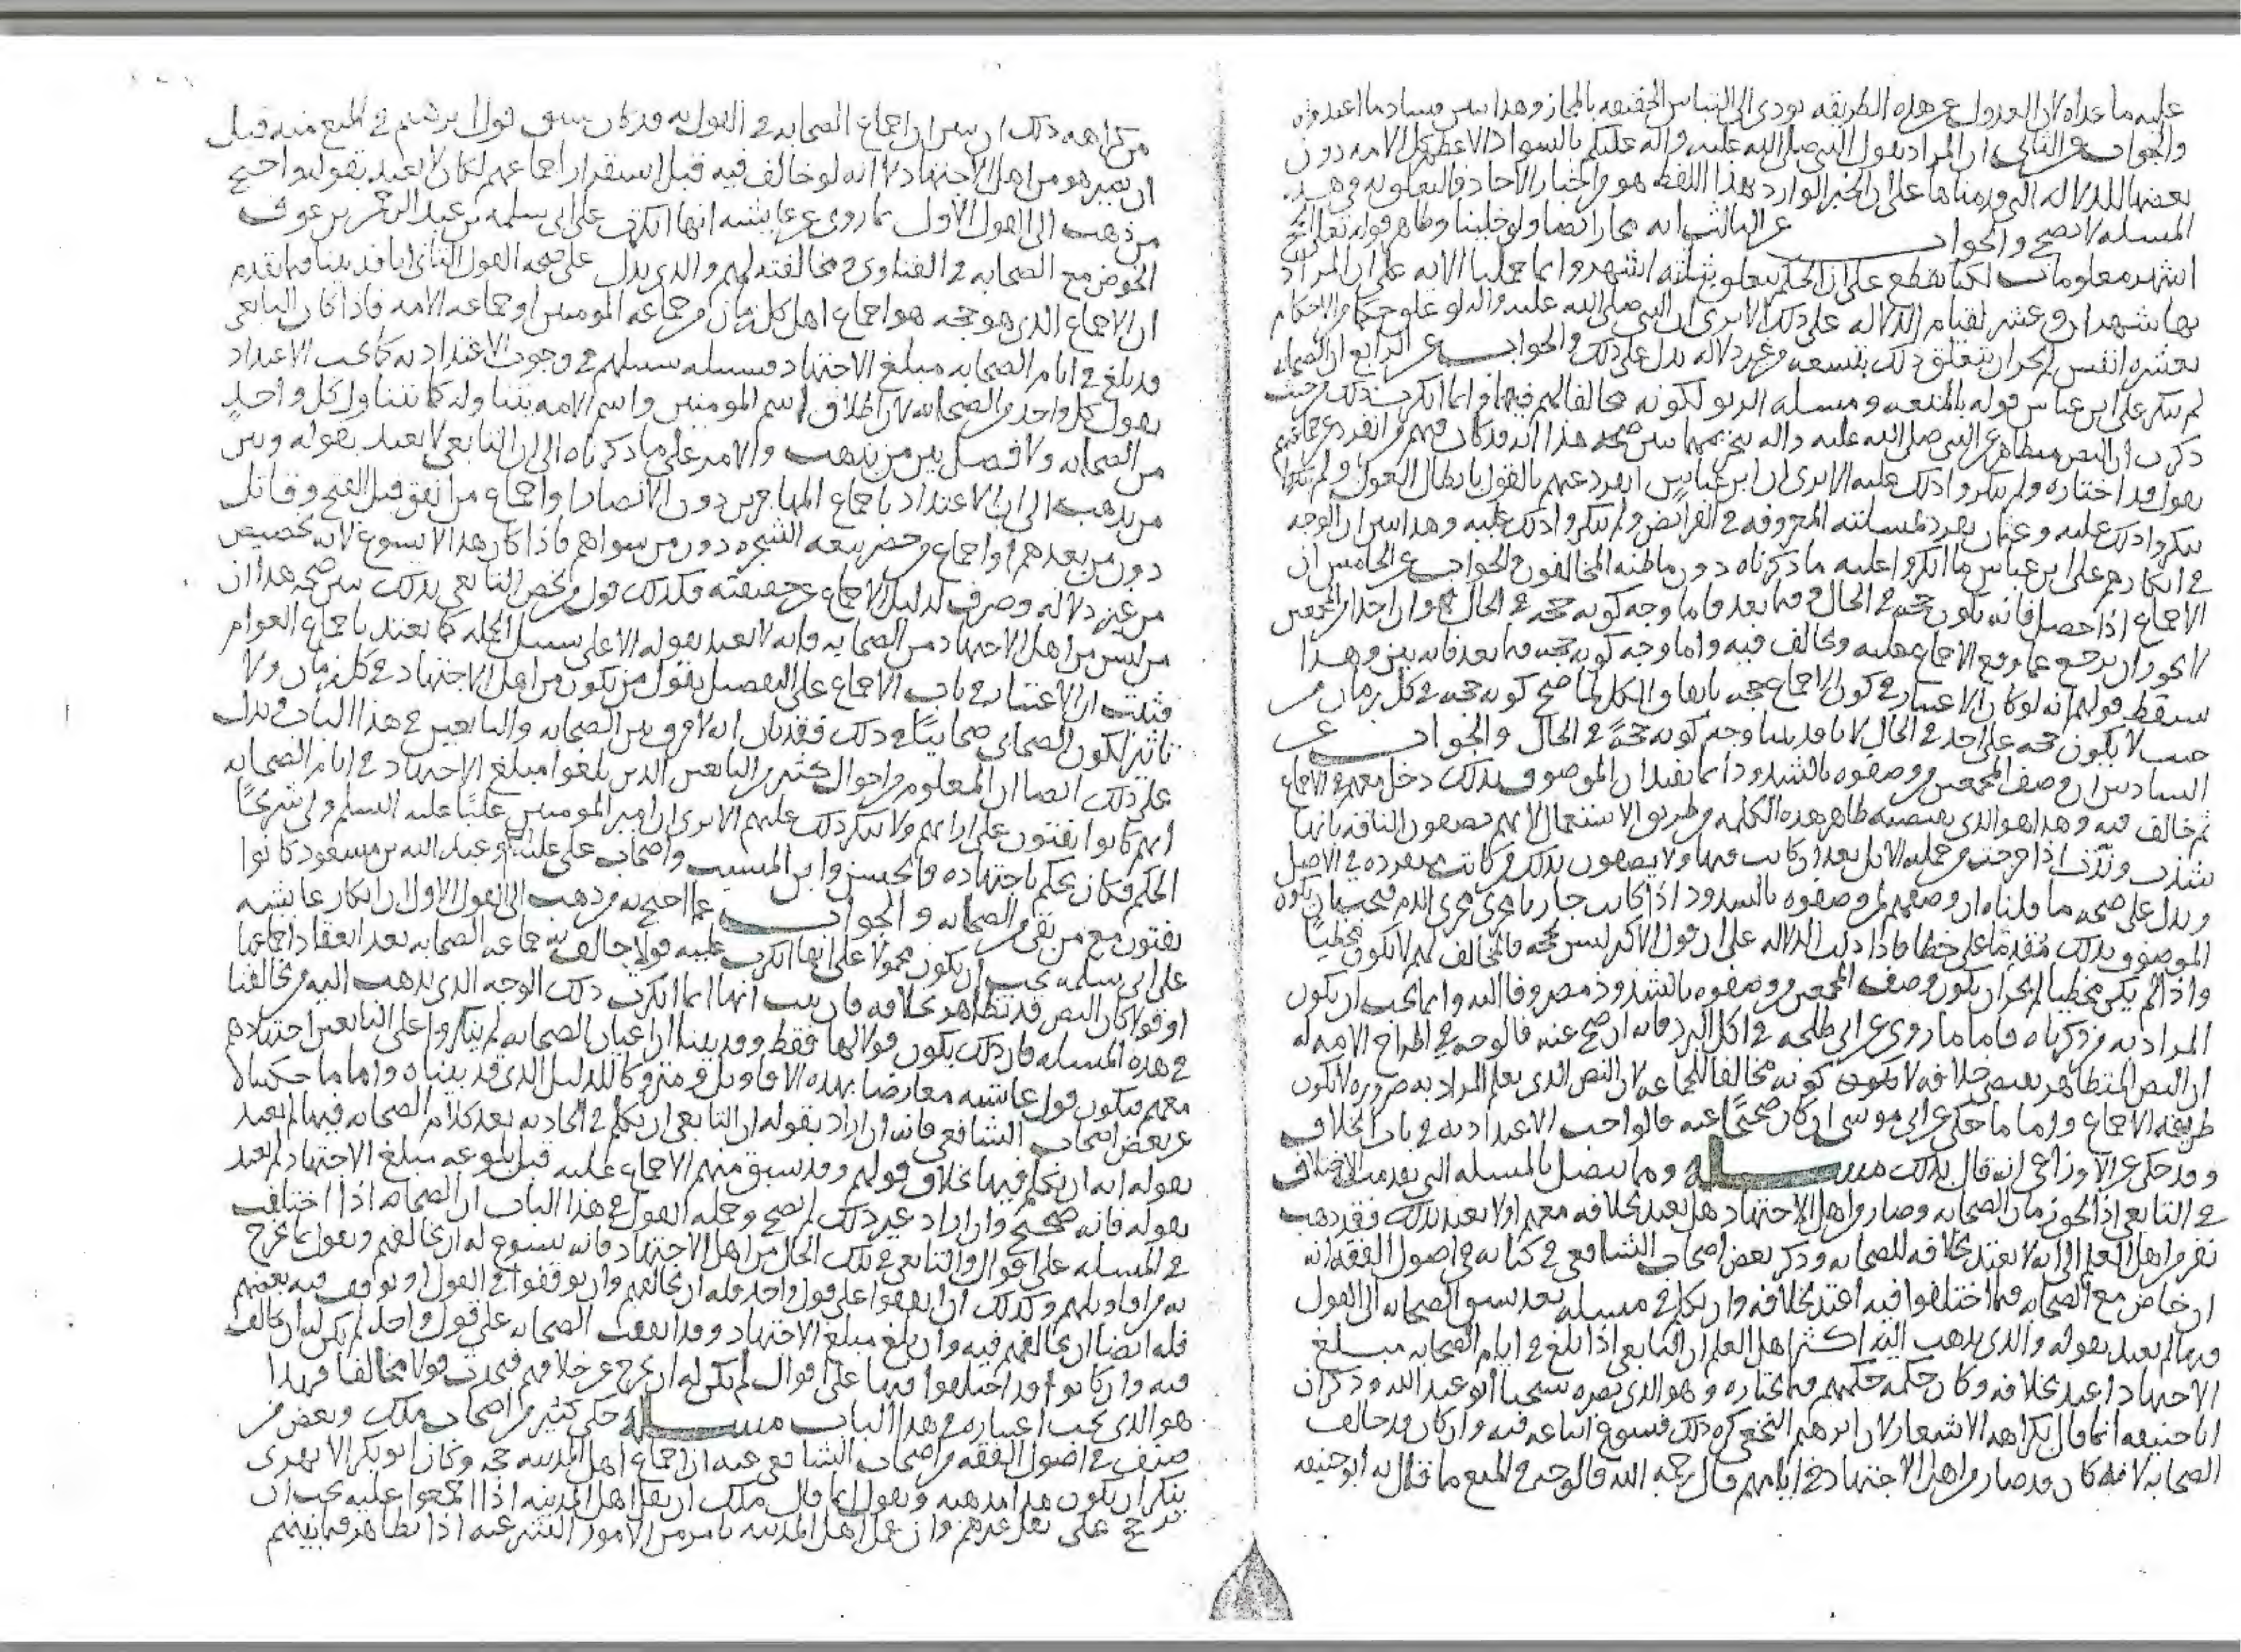 عليه ما عداه لان العدول عن هذه الطريقه يودى الى التباس الحقيقه بالمجاز وهذا يبين فساد ما اعتمدوه
والجواب عن الثانى ان المراد بقول النبى صلى الله عليه واله عليكم بالسواد الاعظم كل الامه دون
بعضها للدلاله التى قدمناها على ان الخبر الوارد بهذا اللفظ هو من اخبار الاحاد فالتعلق به فى هذه
المسله لا يصح والجواب عن الثالث انه مجاز ايضا ولو خلينا وظاهر قوله تعالى الحج
اشهر معلومات لكنا نقطع على ان الحكم يتعلق بثلثه اشهر وانما حملنا الايه على ان المراد
بها شهران وعشر لقيام الدلاله على ذلك الا ترى ان النبى صلى الله عليه واله لو علق حكما من الاحكام
بعشره انفس لم يجز ان يتعلق ذلك بتسعه من غير دلاله تدل على ذلك والجواب عن الرابع ان الصحابه
لم تنكر على ابن عباس قوله بالمتعه ومسله الربو لكونه مخالفا لهم فيها وانما انكرت ذلك من حيث
ذكرت ان النص متظاهر عن النبى صلى الله عليه واله بتحريمهما يبين صحه هذا انه قد كان فيهم من انفرد عن جماعتهم
بقول قد اختاره ولم ينكروا ذلك عليه الا ترى ان ابن عباس انفرد عنهم بالقول بابطال العول ولم
ينكروا ذلك عليه وعثمان تفرد لمسلته المعروفه فى الفرائض ولم ينكروا ذلك عليه وهذا يبين ان الوجه
فى انكارهم على ابن عباس ما انكروا عليه ما ذكرناه دون ما ظنه المخالفون والجواب عن الخامس ان
الاجماع اذا حصل فانه يكون حجه فى الحال وفيما بعد فاما وجه كونه حجه فى الحال فهو ان احدا من المجمعين
لا يجوز ان يرجع عما وقع الاجماع عليه ويخالف فيه واما وجه كونه حجه فيما بعد فانه بين وهذا
سقط قولهم انه لو كان الاعتبار فى كون الاجماع حجه باتفاق الكل لما صح كونه حجه فى كل زمان من
حيث لا يكون حجه على احد فى الحال لانا قد بينا وجه كونه حجه فى الحال والجواب عن
السادس ان وصف المجمعين من وصفوه بالشذوذ انما يفيد ان الموصوف بذلك دخل معهم فى الاجماع
ثم خالف فيه وهذا هو الذى يقتضيه ظاهر هذه الكلمه من طريق الاستعمال لانهم يصفون الناقه بانها
شذت وندت اذا خرجت من جمله الابل بعد ان كانت فيها ولا يصفون بذلك من كانت منفرده فى الاصل
ويدل على صحه ما قلناه ان وصفهم لمن وصفوه بالشذوذ اذا كانت جاريا مجرى الذم فيجب ان يكون
الموصوف بذلك مقدما على خطا فاذا دلت الدلاله على ان قول الاكثر ليس بحجه فالمخالف لهم لا يكون مخطيا
واذا لم يكن مخطيا لم يجز ان يكون وصف المجمعين من وصفوه بالشذوذ مصروفا اليه وانما يجب ان يكون
المراد به من ذكرناه فاما ما روى عن ابى طلحه فى اكل البرد فانه ان صح عنه فالوجه فى اطراح الامه له
ان النص المتظاهر يقتضى خلافه لا كونه مخالفا للجماعه لان النص الذى يعلم المراد به ضروره لا يكون
طريقه الاجماع واما ما حكى عن ابى موسى ان كان صحيحا عنه فالواجب الاعتداد به فى باب الخلاف
وقد حكى عن الاوزاعى انه قال بذلك مسله ومما يتصل بالمسله التى تقدمت الاختلاف
فى التابعى اذا لحق زمان الصحابه وصار من اهل الاجتهاد هل يعتد بخلافه معهم او لا يعتد بذلك فقد ذهب
نفر من اهل العلم الى انه لا يعتد بخلافه للصحابه وذكر بعض اصحاب الشافعى فى كتابه فى اصول الفقه انه
ان خاض مع الصحابه فيما اختلفوا فيه اعتد بخلافه وان تكلم فى مسله بعد سبق الصحابه الى القول
فيها لم يعتد بقوله والذى يذهب اليه اكثر اهل العلم ان التابعى اذا بلغ فى ايام الصحابه مبلغ
الاجتهاد اعتد بخلافه وكان حكمه حكمهم فيما يختاره وهو الذى نصره شيخنا ابو عبد الله وذكر ان
ابا حنيفه انما قال بكراهه الاشعار لان ابرهيم النخعى كره ذلك فسوغ اتباعه فيه وان كان قد خالف
الصحابه لانه كان قد صار من اهل الاجتهاد فى ايامهم قال رحمه الله فالوجه فى المنع ما قال به ابو حنيفه
من كراهه ذلك ان يبين ان اجماع الصحابه فى القول به قد كان سبق قول ابرهيم فى المنع منه قبل
ان يصير هو من اهل الاجتهاد لا انه لو خالف فيه قبل استقرار اجماعهم لكان لا يعتد بقوله واحتج
من ذهب الى القول الاول بما روى عن عايشه انها انكرت على ابى سلمه بن عبد الرحمن بن عوف
الخوض مع الصحابه فى الفتاوى ومخالفته لهم والذى يدل على صحه القول الثانى انا قد بينا فيما تقدم
ان الاجماع الذى هو حجه هو اجماع اهل كل زمان من جماعه المومنين او جماعه الامه فاذا كان التابعى
قد بلغ فى ايام الصحابه مبلغ الاجتهاد فسبيله سبيلهم فى وجوب الاعتداد به كما يجب الاعتداد
بقول كل واحد من الصحابه لان اطلاق اسم المومنين واسم الامه يتناوله كما يتناول كل واحد
من الصحابه ولا فصل بين من يذهب والامر على ما ذكرناه الى ان التابعى لا يعتد بقوله وبين
من يذهب الى ان الاعتداد باجماع المهاجرين دون الانصار او اجماع من انفق قبل الفتح وقاتل
دون من بعدهم او اجماع من حضر بيعه الشجره دون من سواهم فاذا كان هذا لا يسوغ لانه تخصيص
من غير دلاله وصرف لدليل الاجماع عن حقيقته فكذلك قول من يخص التابعى بذلك يبين صحه هذا ان
من ليس من اهل الاجتهاد من الصحابه فانه لا يعتد بقوله الا على سبيل الجمله كما يعتد باجماع العوام
فثبت ان الاعتبار فى باب الاجماع على التفصيل بقول من يكون من اهل الاجتهاد فى كل زمان ولا
تاثير لكون الصحابى صحابيا فى ذلك فقد بان انه لا فرق بين الصحابه والتابعين فى هذا الباب ويدل
على ذلك ايضا ان المعلوم من احوال كثير من التابعين الذين بلغوا مبلغ الاجتهاد فى ايام الصحابه
انهم كانوا يفتون على ارائهم ولا ينكر ذلك عليهم الا ترى ان امير المومنين عليا عليه السلم ولى شريحا
الحكم فكان يحكم باجتهاده والحسن وابن المسيب واصحاب على عليه السلم وعبد الله بن مسعود كانوا
يفتون مع من بقى من الصحابه والجواب عما احتج به من ذهب الى القول الاول ان انكار عايشه
على ابى سلمه يجب ان يكون محمولا على انها انكرت عليه قولا خالف به جماعه الصحابه بعد انعقاد اجماعها
او قولا كان النص قد تظاهر بخلافه فان ثبت انها انما انكرت ذلك الوجه الذى يذهب اليه من يخالفنا
فى هذه المسله فان ذلك يكون قولا لها فقط وقد بينا ان اعيان الصحابه لم ينكروا على التابعين اجتهادهم
معهم فيكون قول عايشه معارضا بهذه الاقاويل ومتروكا للدليل الذى قد بيناه واما ما حكيناه
عن بعض اصحاب الشافعى فانه ان اراد بقوله ان التابعى ان تكلم فى الحادثه بعد كلام الصحابه فيها لم يعتد
بقوله انه ان تكلم فيها بخلاف قولهم وقد سبق منهم الاجماع عليه قبل بلوغه مبلغ الاجتهاد لم يعتد
بقوله فانه صحيح وان اراد غير ذلك لم يصح وجمله القول فى هذا الباب ان الصحابه اذا اختلفت
فى المسله على اقوال والتابعى فى تلك الحال من اهل الاجتهاد فانه يسوغ له ان يخالفهم ويقول بما يخرج
به من اقاويلهم وكذلك ان اتفقوا على قول واحد فله ان يخالفهم وان توقفوا فى القول او توقف فيه بعضهم
فله ايضا ان يخالفهم فيه وان بلغ مبلغ الاجتهاد وقد اتفقت الصحابه على قول واحد لم يكن له ان يخالف
فيه وان كانوا قد اختلفوا فيها على اقوال لم يكن له ان يخرج عن خلافهم فيحدث قولا مخالفا فهذا
هو الذى يجب اعتباره فى هذا الباب مسله حكى كثير من اصحاب ملك وبعض من
صنف فى اصول الفقه من اصحاب الشافعى عنه ان اجماع اهل المدينه حجه وكان ابو بكر الابهرى
ينكر ان يكون هذا مذهبه ويقول انما قال ملك ان نقل اهل المدينه اذا اجمعوا عليه يجب ان
يرجح على نقل غيرهم وان عمل اهل المدينه بامر من الامور الشرعيه اذا تظاهر فيما بينهم